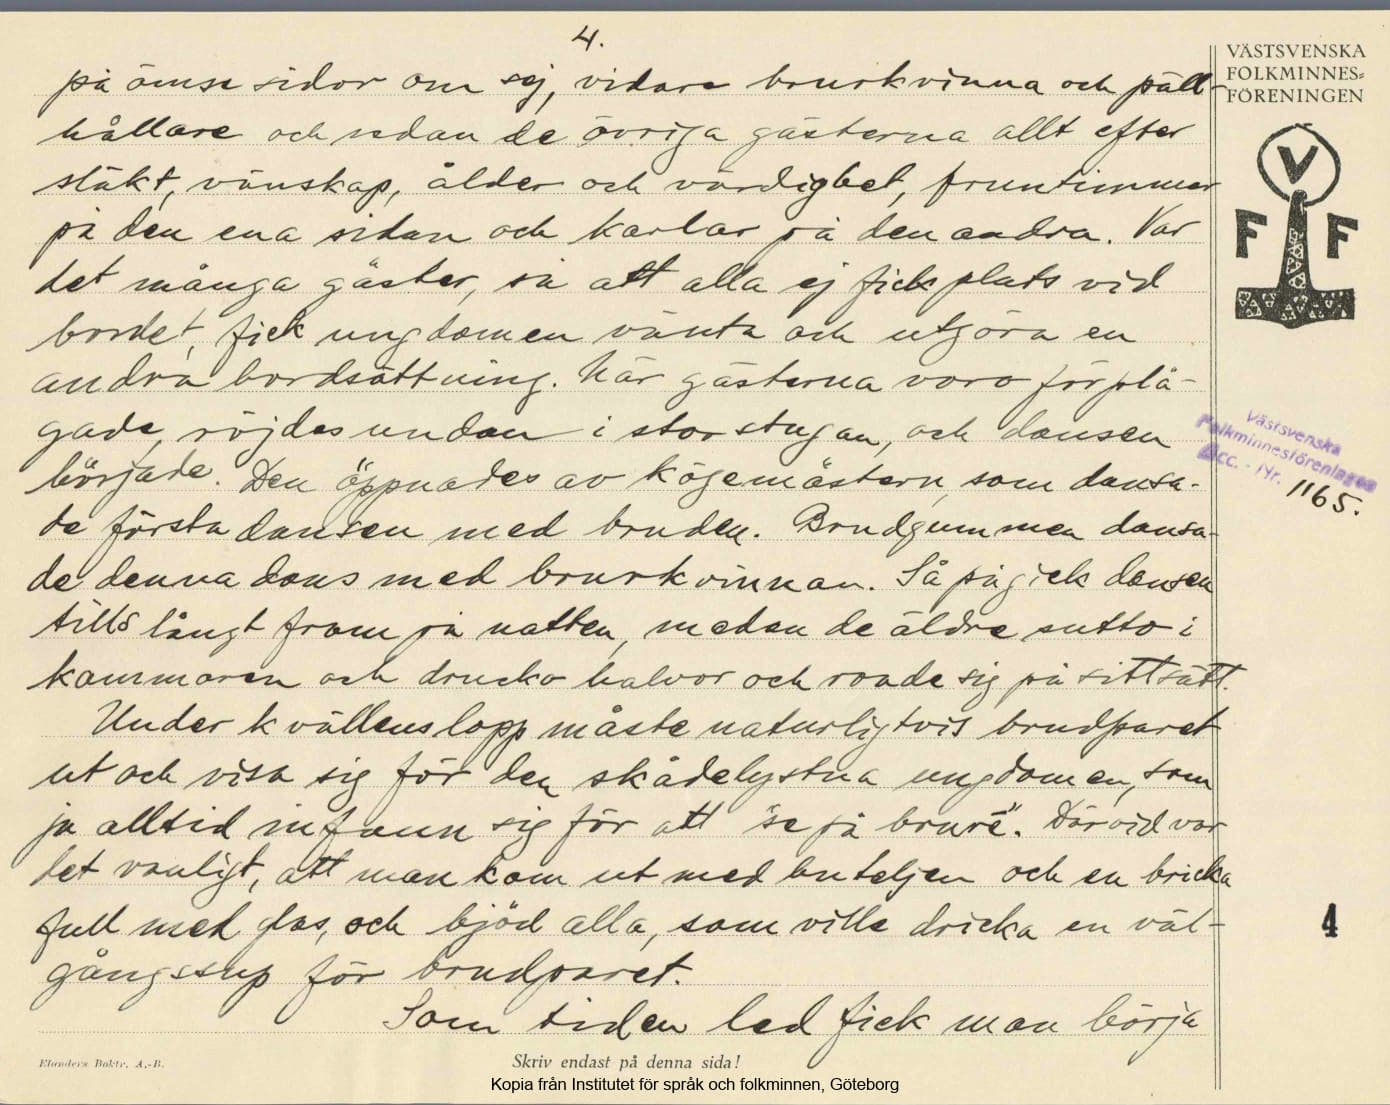 4.
på ömse sidor om sej, vidare brurkvinna och päll-
hållare och sedan de övriga gästerna allt efter
släkt, vänskap, ålder och värdighet, fruntimmer
på den ena sidan och karlar på den andra. Var
det många gäster, så att alla ej fick plats vid
bordet, fick ungdomen vänta och utgöra en
andra bordsättning. När gästerna voro förplä-
gade, röjdes undan i storstugan, och dansen
började. Den öppnades av kögemästern, som dansa-
de första dansen med bruden. Brudgummen dansa-
de denna dans med brurkvinnan. Så pågick dansen
tills långt fram på natten, medan de äldre sutto i
kammaren och drucko halvor och roade sig på sitt sätt.
Under kvällens lopp måste naturligtvis brudparet
ut och visa sig för den skådelystna ungdomen, som
ju alltid infann sig för att "se på brure". Därvid var
det vanligt, att man kom ut med buteljen och en bricka
full med glas, och bjöd alla, som ville dricka en väl-
gångssup för brudparet.
Som tiden led fick man börja
VÄSTSVENSKA
FOLKMINNES=
FÖRENINGEN
V
F F
Västsvenska
Folkminnesföreningen
Acc. - Nr. 1165.
4
Elanders Boktr. A.-B.
Skriv endast på denna sida!
Kopia från Institutet för språk och folkminnen, Göteborg